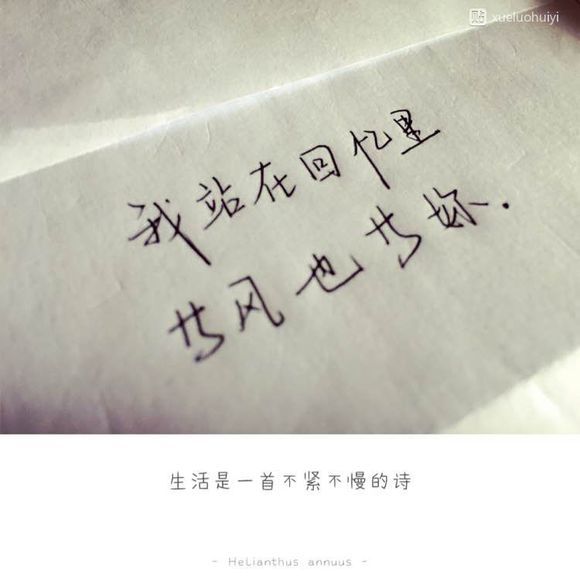 贴 xueluohuiyi
我站在回忆里
等风也等妳.
生活是一首不紧不慢的诗
- Helianthus annuus -